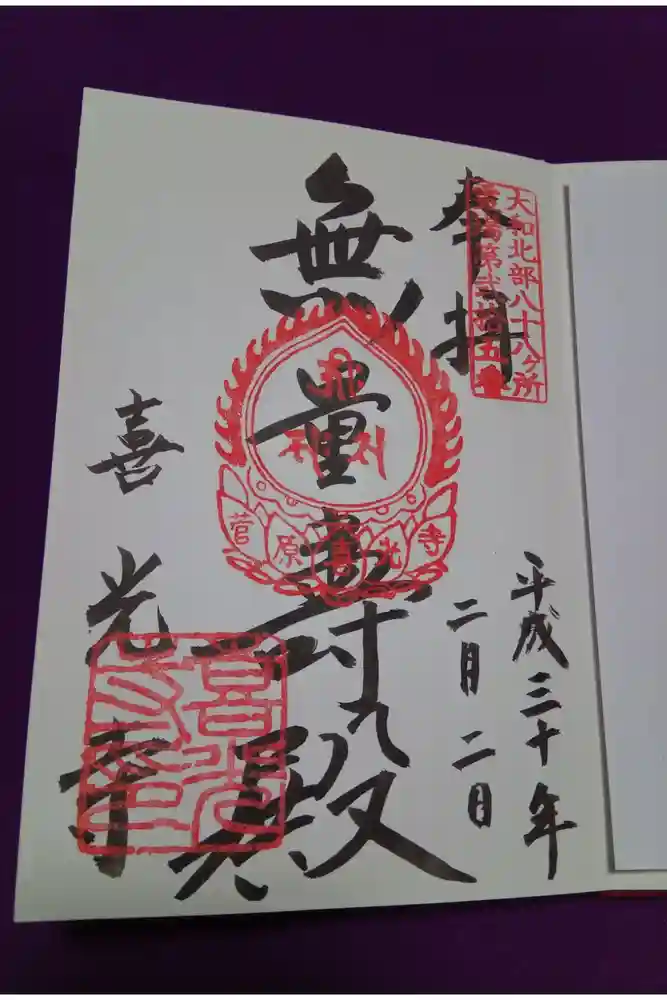 大和北部八十八ヶ所
霊場第弐拾五番
奉拝
平成三十年
二月二日
無量寿殿
菅原喜光寺
喜光寺